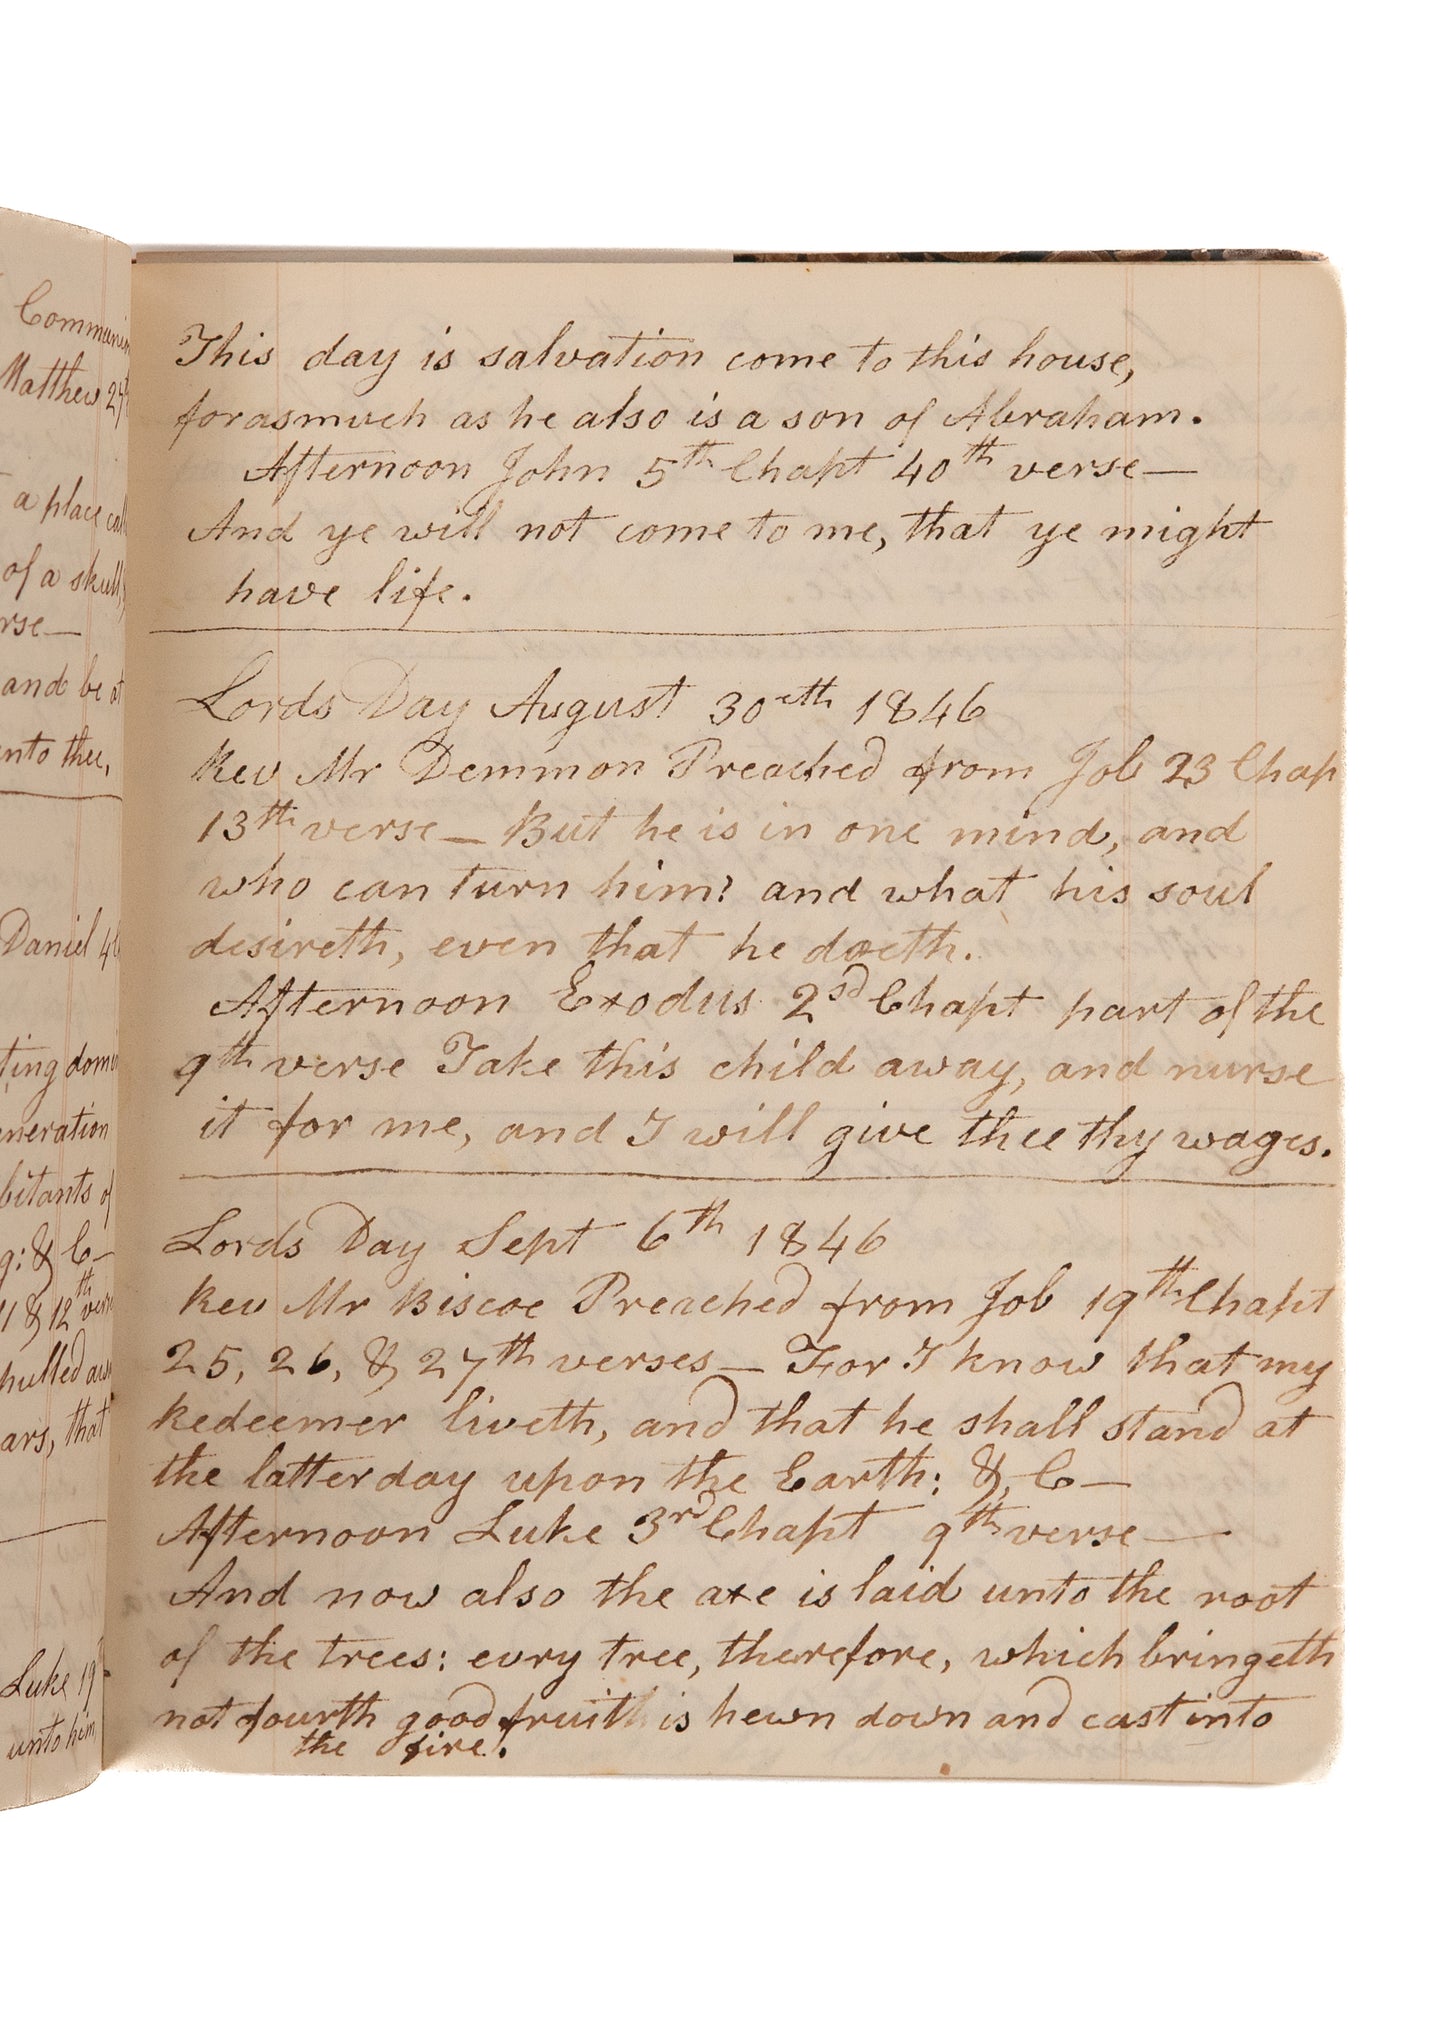 Communin
Matthew 27th
a place call
of a skull,
rse—
and be at
nto thee,
Daniel 4th
ting domin
eneration
bitants of
g: & C—
11 & 12th verse
pulled awa
ars, that
Luke 19th
unto him
This day is salvation come to this house,
forasmuch as he also is a son of Abraham.
Afternoon John 5th Chapt 40th verse—
And ye will not come to me, that ye might
have life.
Lords Day August 30eth 1846
Rev Mr Demmon Preached from Job 23 Chap
13th verse— But he is in one mind, and
who can turn him? and what his soul
desireth, even that he doeth.
Afternoon Exodus 2sd Chapt part of the
9th verse Take this child away, and nurse
it for me, and I will give thee thy wages.
Lords Day Sept 6th 1846
Rev Mr Biscoe Preached from Job 19th Chapt
25, 26, & 27th verses— For I know that my
Redeemer liveth, and that he shall stand at
the latter day upon the Earth: & C—
Afternoon Luke 3rd Chapt 9th verse—
And now also the axe is laid unto the root
of the trees: evry tree, therefore, which bringeth
not fourth good fruith is hewn down and cast into
the fire.